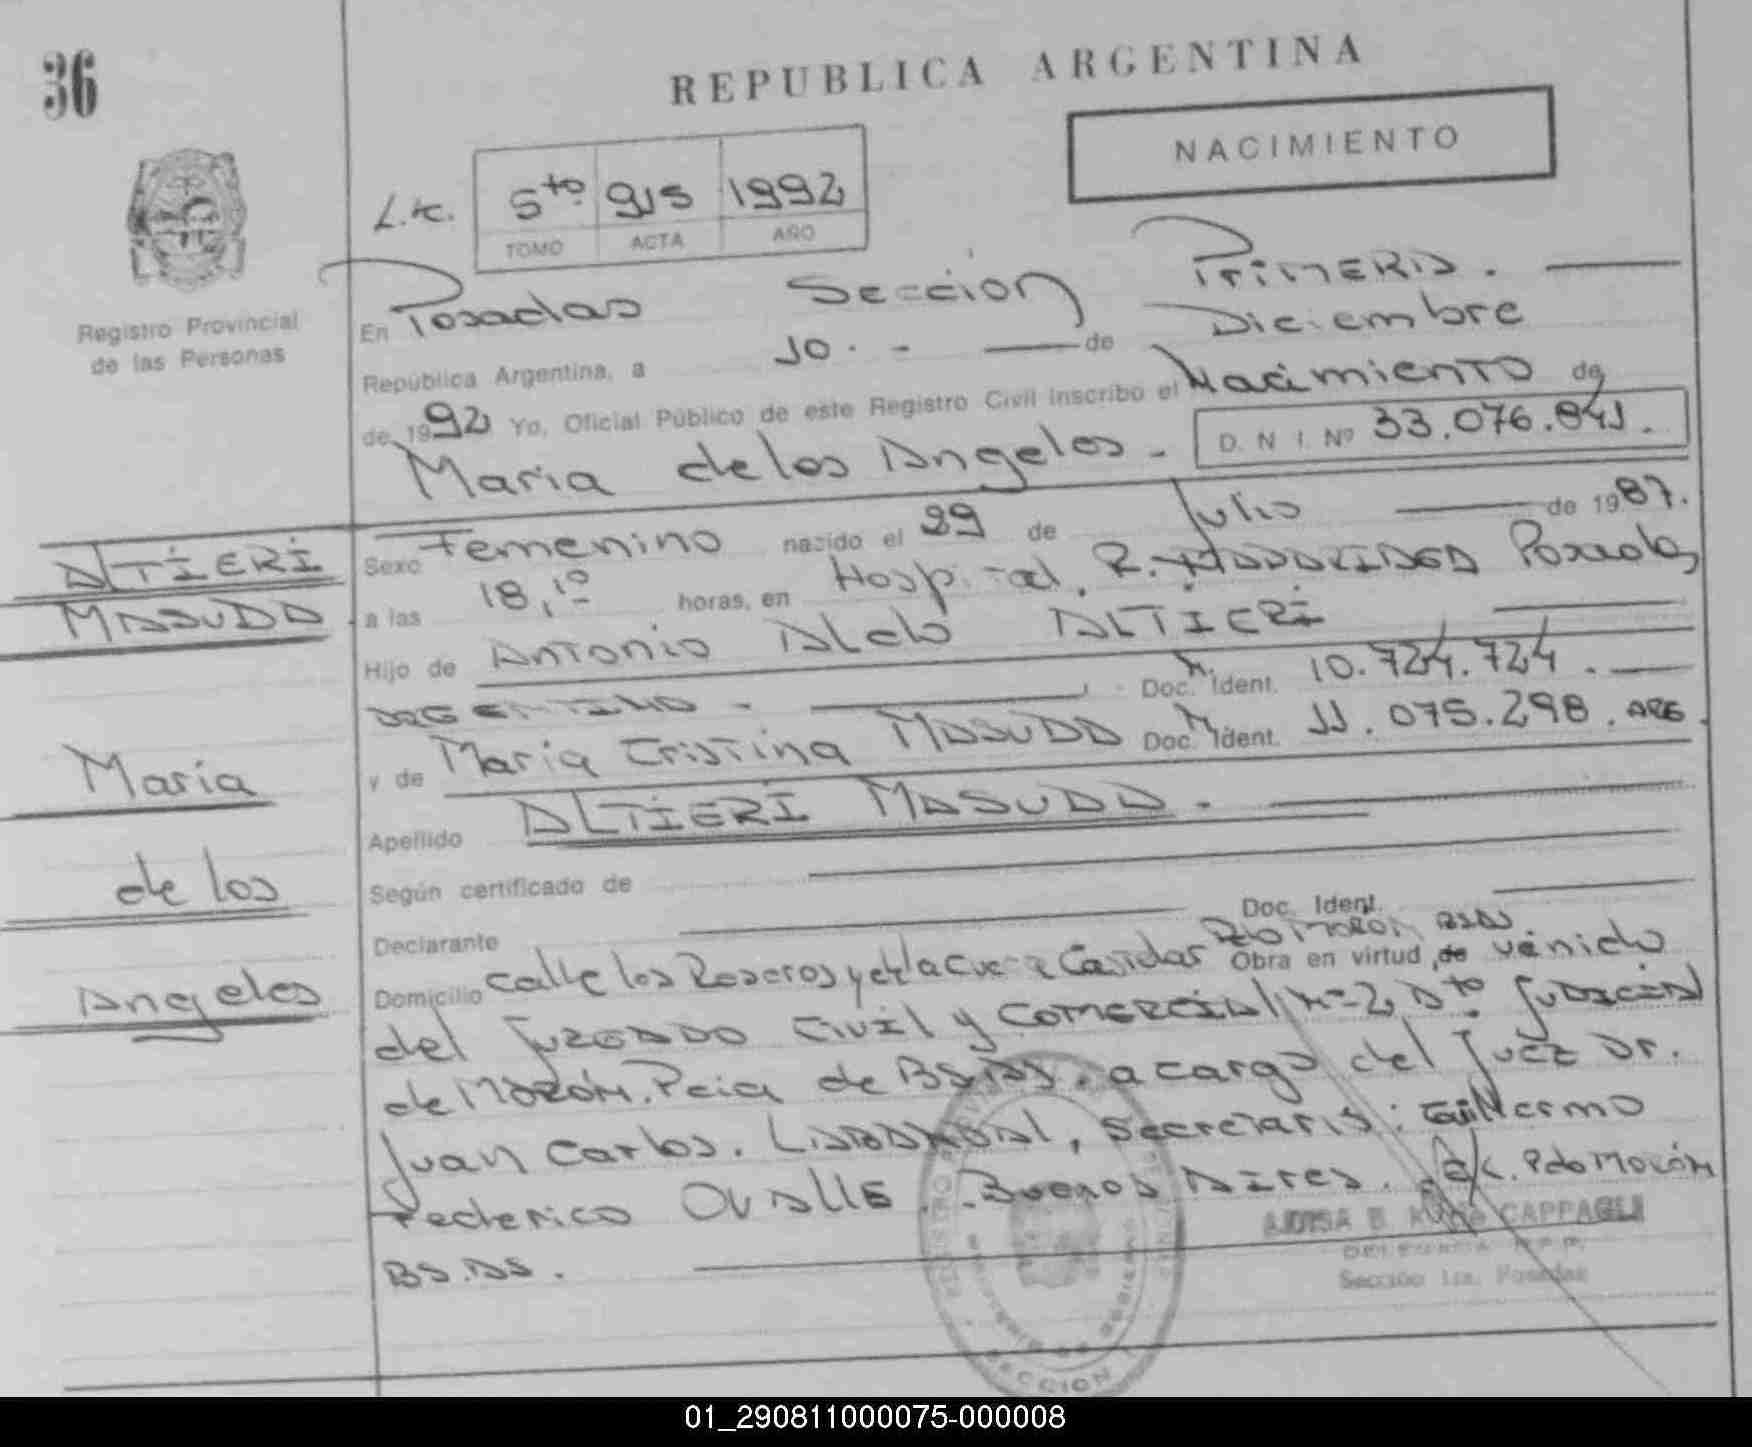 36
REPUBLICA ARGENTINA
NACIMIENTO
5to 915 1992
TOMO ACTA AÑO
Registro Provincial
de las Personas
En Posadas Sección Primera. —
República Argentina, a 10. - — de Diciembre
de 1992 Yo, Oficial Público de este Registro Civil inscribo el Nacimiento de
Maria de los Angeles - D. N I. Nº 33.076.841.
Sexo Femenino nacido el 29 de Julio — de 1987.
a las 18,10 horas, en Hospital, R. Posadas
Hijo de Antonio ALTIERI
ARGENTINO - — Doc. Ident. 10.724.724. —
y de Maria Cristina MASUDA Doc. Ident. 11.075.298. ARG.
Apellido ALTIERI MASUDA. —
Según certificado de —
Declarante — Doc. Ident. —
PDO MORON BSAS
Domicilio calle los Reseros y de la Obra en virtud de
del JUZGADO CIVIL y COMERCIAL Nº 2, Dto JUDICIAL
de MORÓN. Pcia de BS.AS. a cargo del Juez Dr.
Juan Carlos. Secretaria: Guillermo
Federico OVALLE. Buenos Aires. Pdo MORÓN
BS.AS. —
ALTIERI
MASUDA
Maria
de los
Angeles
CAPPAGLI
Sección 1ra. Posadas
SECCION
01_290811000075-000008